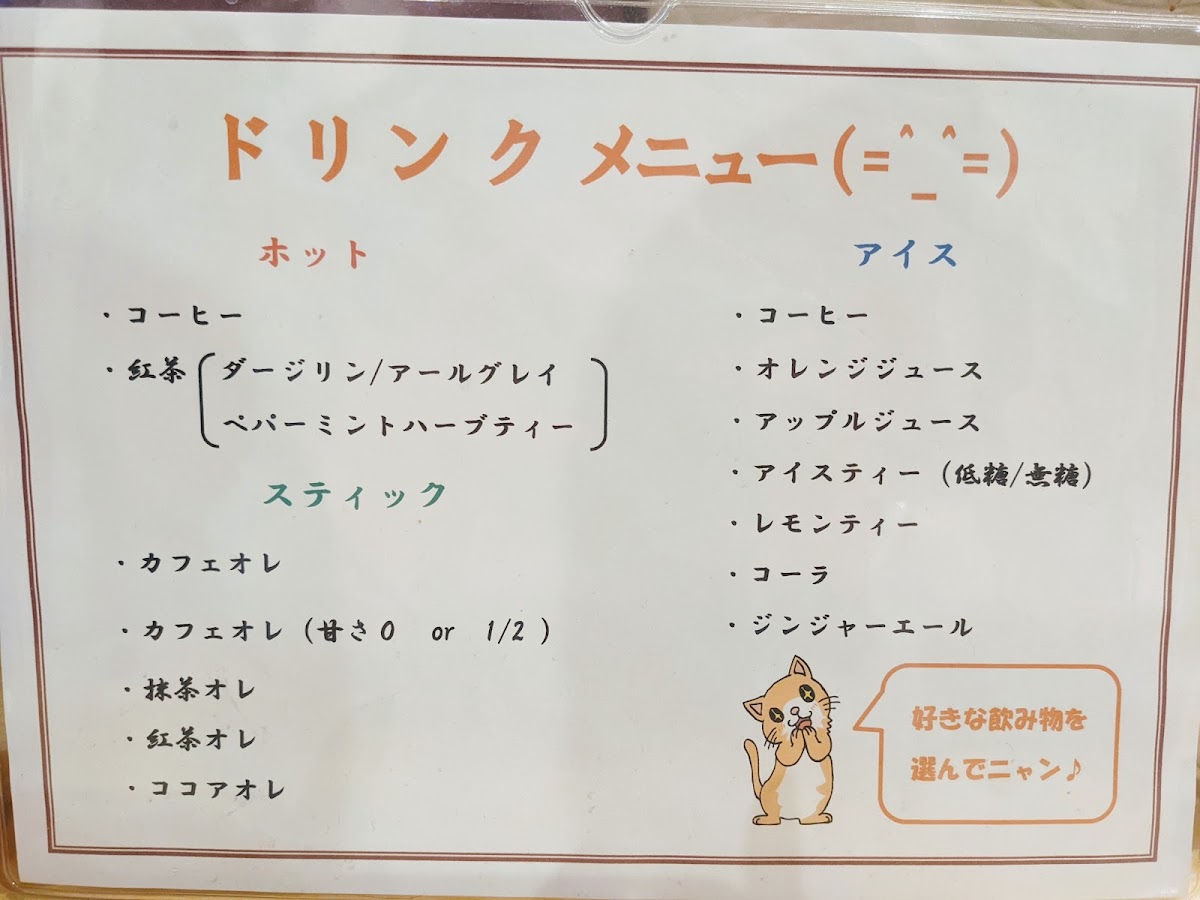 ドリンクメニュー(=^_^=)
ホット
・コーヒー
・紅茶
ダージリン/アールグレイ
ペパーミントハーブティー
スティック
・カフェオレ
・カフェオレ（甘さ0 or 1/2 ）
・抹茶オレ
・紅茶オレ
・ココアオレ
アイス
・コーヒー
・オレンジジュース
・アップルジュース
・アイスティー（低糖/無糖）
・レモンティー
・コーラ
・ジンジャーエール
好きな飲み物を
選んでニャン♪